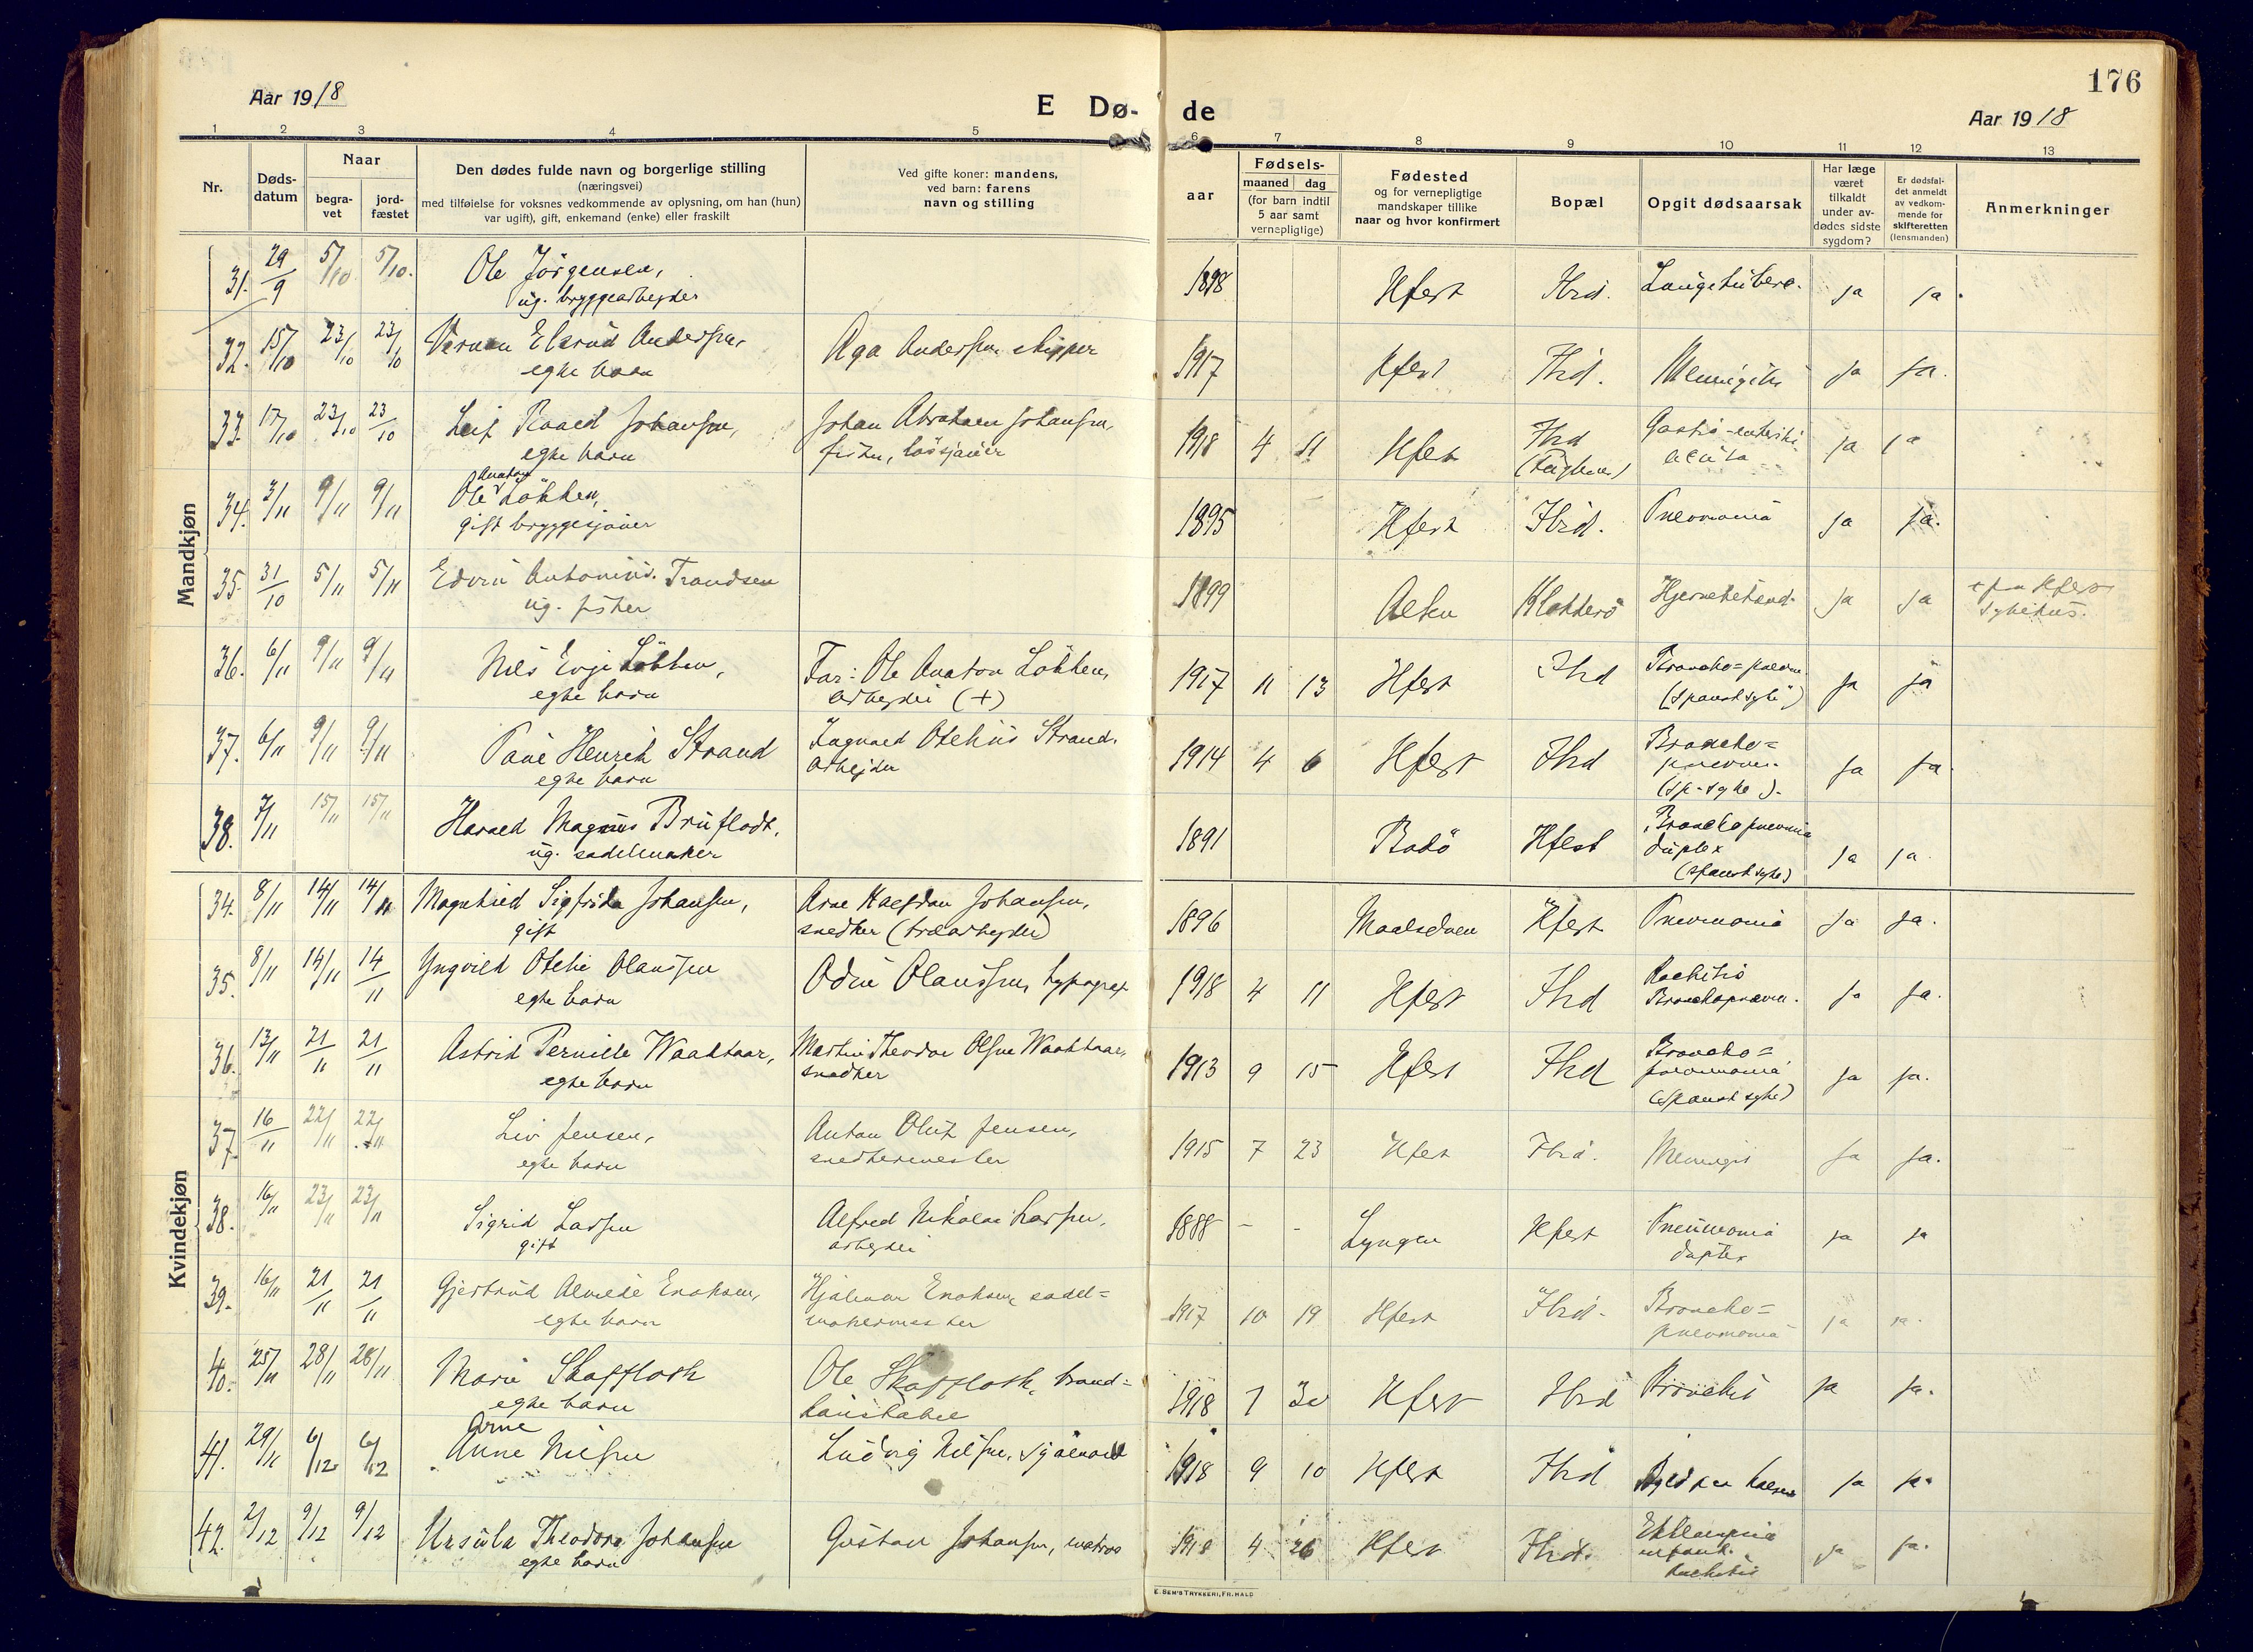 176
Aar 1918
E Dø-
de
Aar 1918
1 2 3 4 5 6 7 8 9 10 11 12 13
Nr.
Døds-
datum
Naar
begra-
vet
jord-
fæstet
Den dødes fulde navn og borgerlige stilling
(næringsvei)
med tilføielse for voksnes vedkommende av oplysning, om han (hun)
var ugift), gift, enkemand (enke) eller fraskilt
Ved gifte koner: mandens,
ved barn: farens
navn og stilling
aar
Fødsels-
maaned dag
(for barn indtil
5 aar samt
vernepligtige)
Fødested
og for vernepligtige
mandskaper tillike
naar og hvor konfirmert
Bopæl
Opgit dødsaarsak
Har læge
været
tilkaldt
under av-
dødes sidste
sygdom?
Er dødsfal-
det anmeldt
av vedkom-
mende for
skifteretten
(lensmanden)
Anmerkninger
Mandkjøn
31. 29/9 5/10 5/10. Ole Jörgensen, 1898 Hfest Ihrd. ja ja.
ug. bryggearbeyder
32. 15/10 23/10 23/10 Elsrud Anderssen Aga Anderssen skipper 1917 Hfest Ihrd. Meningitis ja ja.
egte barn
33. 17/10 23/10 23/10 Leif Johanssen, Johan Abraham Johanssen, 1918 4 11 Hfest Ihrd Gastro-enteritis ja ja
egte barn fisker, acuta
34. 3/11 9/11 9/11 Ole Anaton Løkken, 1895 Hfest Ihrd. Pneumonia ja ja.
gift bryggesjauer
35. 31/10 5/11 5/11 Edvin Antonius Trondsen 1899 Alten Hjernebetænd. ja ja Hfest
ug. fisker sykehus.
36. 6/11 9/11 9/11 Nils Evje Løkken, Far: Ole Anaton Løkken, 1917 11 13 Hfest Ihrd Broncho=pneum. ja ja
egte barn arbeyder (+) (spansk syke)
37. 6/11 9/11 9/11 Henrik Strand Ingvald Strand. 1914 4 6 Hfest Ihrd Broncho= ja ja.
egte barn arbejder pneum.
(sp-syke).
38. 7/11 15/11 15/11 Harald Magnus Bruflodt, 1891 Bodö Hfest Bronchopneumonia ja ja.
ug. sadelmaker duplex
(spansk syke)
Kvindekjøn
34. 8/11 14/11 14/11 Magnhild Sigfrida Johanssen, Arne Halfdan Johanssen, 1896 Hfest Pneumonia ja ja.
gift snedker (træarbeyder)
35. 8/11 14/11 14/11 Yngvild Otelie Olaussen Odin Olaussen, typograf 1918 4 11 Hfest Ihrd Rachitis ja ja.
egte barn Bronchopneum.
36. 13/11 21/11 21/11 Astrid Pernille Waaktaar, Martin Theodor Olsen Waaktaar, 1913 9 15 Hfest Ihrd Broncho= ja ja.
egte barn snedker pneumonia
(spansk syke)
37. 16/11 22/11 22/11 Liv Jensen, Anton Oluf Jensen, 1915 7 23 Hfest Ihrd. ja ja.
egte barn snedkermester
38. 16/11 23/11 23/11 Sigrid Larssen Alfred Nikolai Larssen, 1888 - - Lyngen Hfest Pneumonia ja ja
gift arbeyder duplex
39. 16/11 21/11 21/11 Gjertrud Enoksen, Hjalmar Enoksen, sadel= 1917 10 19 Hfest Ihrd. Broncho= ja ja.
egte barn makermester pneumonia
40. 25/11 28/11 28/11 Marie Skafflotk Ole Skafflotk, brand= 1918 7 30 Hfest Ihrd Bronchit ja ja.
egte barn konstabel
41. 29/11 6/12 6/12 Arne Nilsen Ludvig Nilsen, 1918 9 10 Hfest Ihrd ja ja.
Anne
42. 2/12 9/12 9/12 Ursula Theodora Johanssen Gustav Johanssen, matros 1918 4 26 Hfest Ihrd. Eklampsia ja ja.
egte barn infant.
Rachitis
E. SEM'S TRYKKERI, FR.HALD